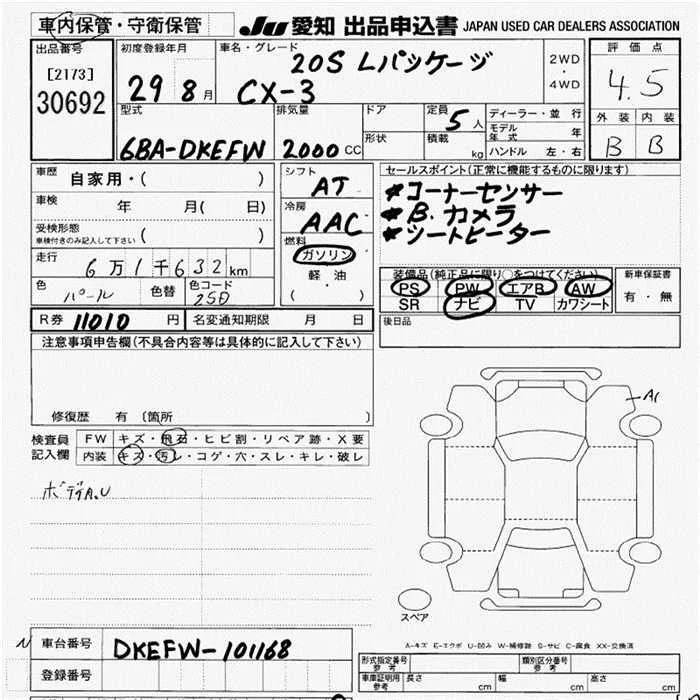 車内保管・守衛保管 JU 愛知 出品申込書 JAPAN USED CAR DEALERS ASSOCIATION
出品番号 初度登録年月 車名・グレード 評価点
[2173] 29 8月 20S Lパッケージ 2WD・4WD 4.5
30692 CX-3
型式 排気量 ドア 定員 5人 ディーラー・並行 外装 内装
6BA-DKEFW 2000CC 形状 積載 kg モデル年式 年 B B
ハンドル 左・右
車歴 自家用・( ) シフト AT セールスポイント(正常に機能するものに限ります)
車検 年 月( 日) 冷房 AAC *コーナーセンサー
受検形態 ( ) *B.カメラ
車検付きのみ記入して下さい 燃料 *シートヒーター
走行 6万1千632km ガソリン 装備品(純正品に限り○をつけてください) 新車保証書
色 パール 色替 色コード 25D 軽油 PS PW エアB AW 有・無
( ) SR ナビ TV カワシート
R券 11010円 名変通知期限 月 日 後日品
注意事項申告欄(不具合内容等は具体的に記入して下さい)
修復歴 有〔箇所 A1
検査員 FW キズ・飛石・ヒビ割・リペア跡・X要
記入欄 内装 キズ・汚レ・コゲ・穴・スレ・キレ・破レ
ボディA,U
スペア
A-キズ E-エクボ U-凹み W-補修跡 S-サビ C-腐食 XX-交換済
N 車台番号 DKEFW-101168
登録番号
形式指定番号 参考 類別区分番号 参考
車庫証明用 参考 長さ cm 幅 cm 高さ cm